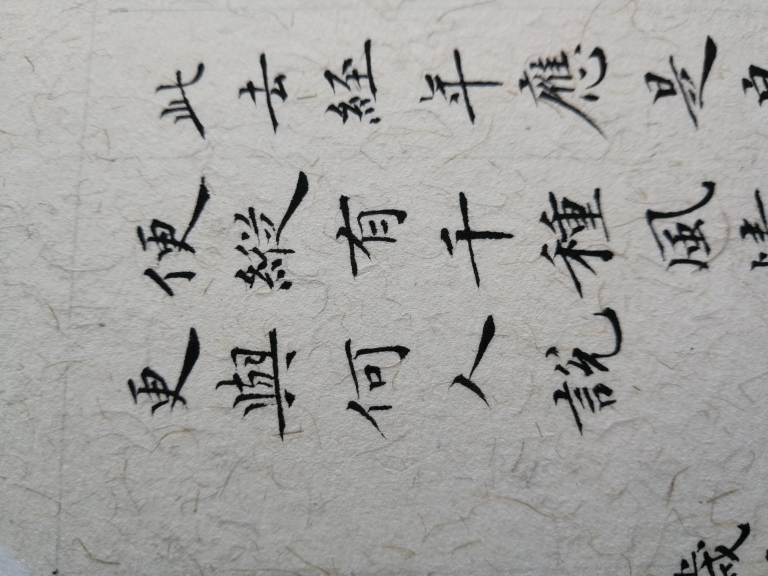 此去経年應是
便縱有千種風
更與何人說
歲